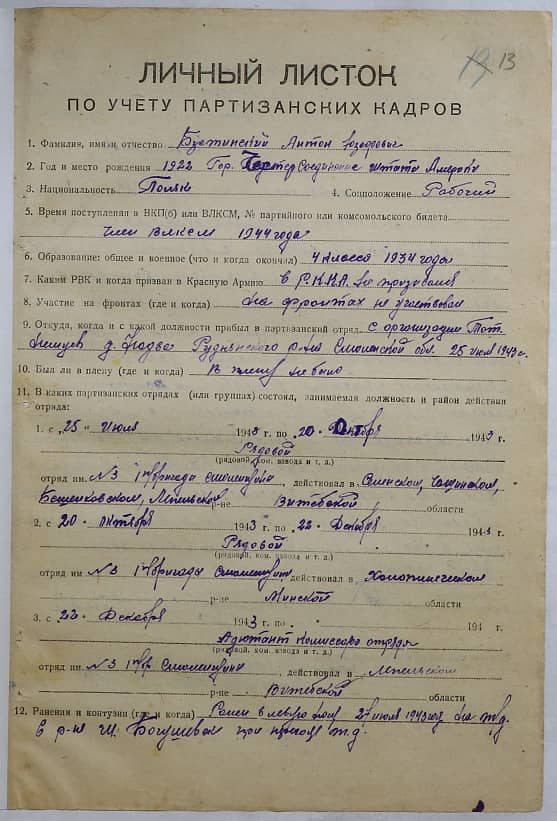 13
ЛИЧНЫЙ ЛИСТОК
ПО УЧЕТУ ПАРТИЗАНСКИХ КАДРОВ
1. Фамилия, имя и отчество Антон
2. Год и место рождения 1922 Гор. Соединение штати Америки
3. Национальность Поляк 4. Соцположение Рабочий
5. Время поступления в ВКП(б) или ВЛКСМ, № партийного или комсомольского билета
Член ВЛКСМ 1944 года
6. Образование: общее и военное (что и когда окончил) 4 класса 1934 годы
7. Каким РВК и когда призван в Красную Армию в Р.К.К.А. не призывался
8. Участие на фронтах (где и когда) на фронтах не участвовал
9. Откуда, когда и с какой должности прибыл в партизанский отряд с организации
д. Руднянского р-на Смоленской обл. 25 июля 1943 г.
10. Был ли в плену (где и когда) В плену не было
11. В каких партизанских отрядах (или группах) состоял, занимаемая должность и район действия
отряда:
1. с „25“ Июля 1943 г. по „20“ 1943 г.
Рядовой
(рядовой, ком. взвода и т. д.)
отряд им. №3 действовал в Сенском, Чашникском,
Бешенковском, р-не Витебской области
2. с 20 октября 1943 г. по 22 Декабря 1943 г.
Рядовой
(рядовой, ком. взвода и т. д.)
отряд им №3 действовал в
р-не Минской области
3. с 22 Декабря 1943 г. по 194 г.
Адютант комиссара отряда
(рядовой, ком. взвода и т. д.)
отряд им. №3 , действовал в
р-не Витебской области
12. Ранения и контузии (где и когда) Ранен в левую ногу 27 июля 1943 год на ж/д.
в р-не при ж.д.